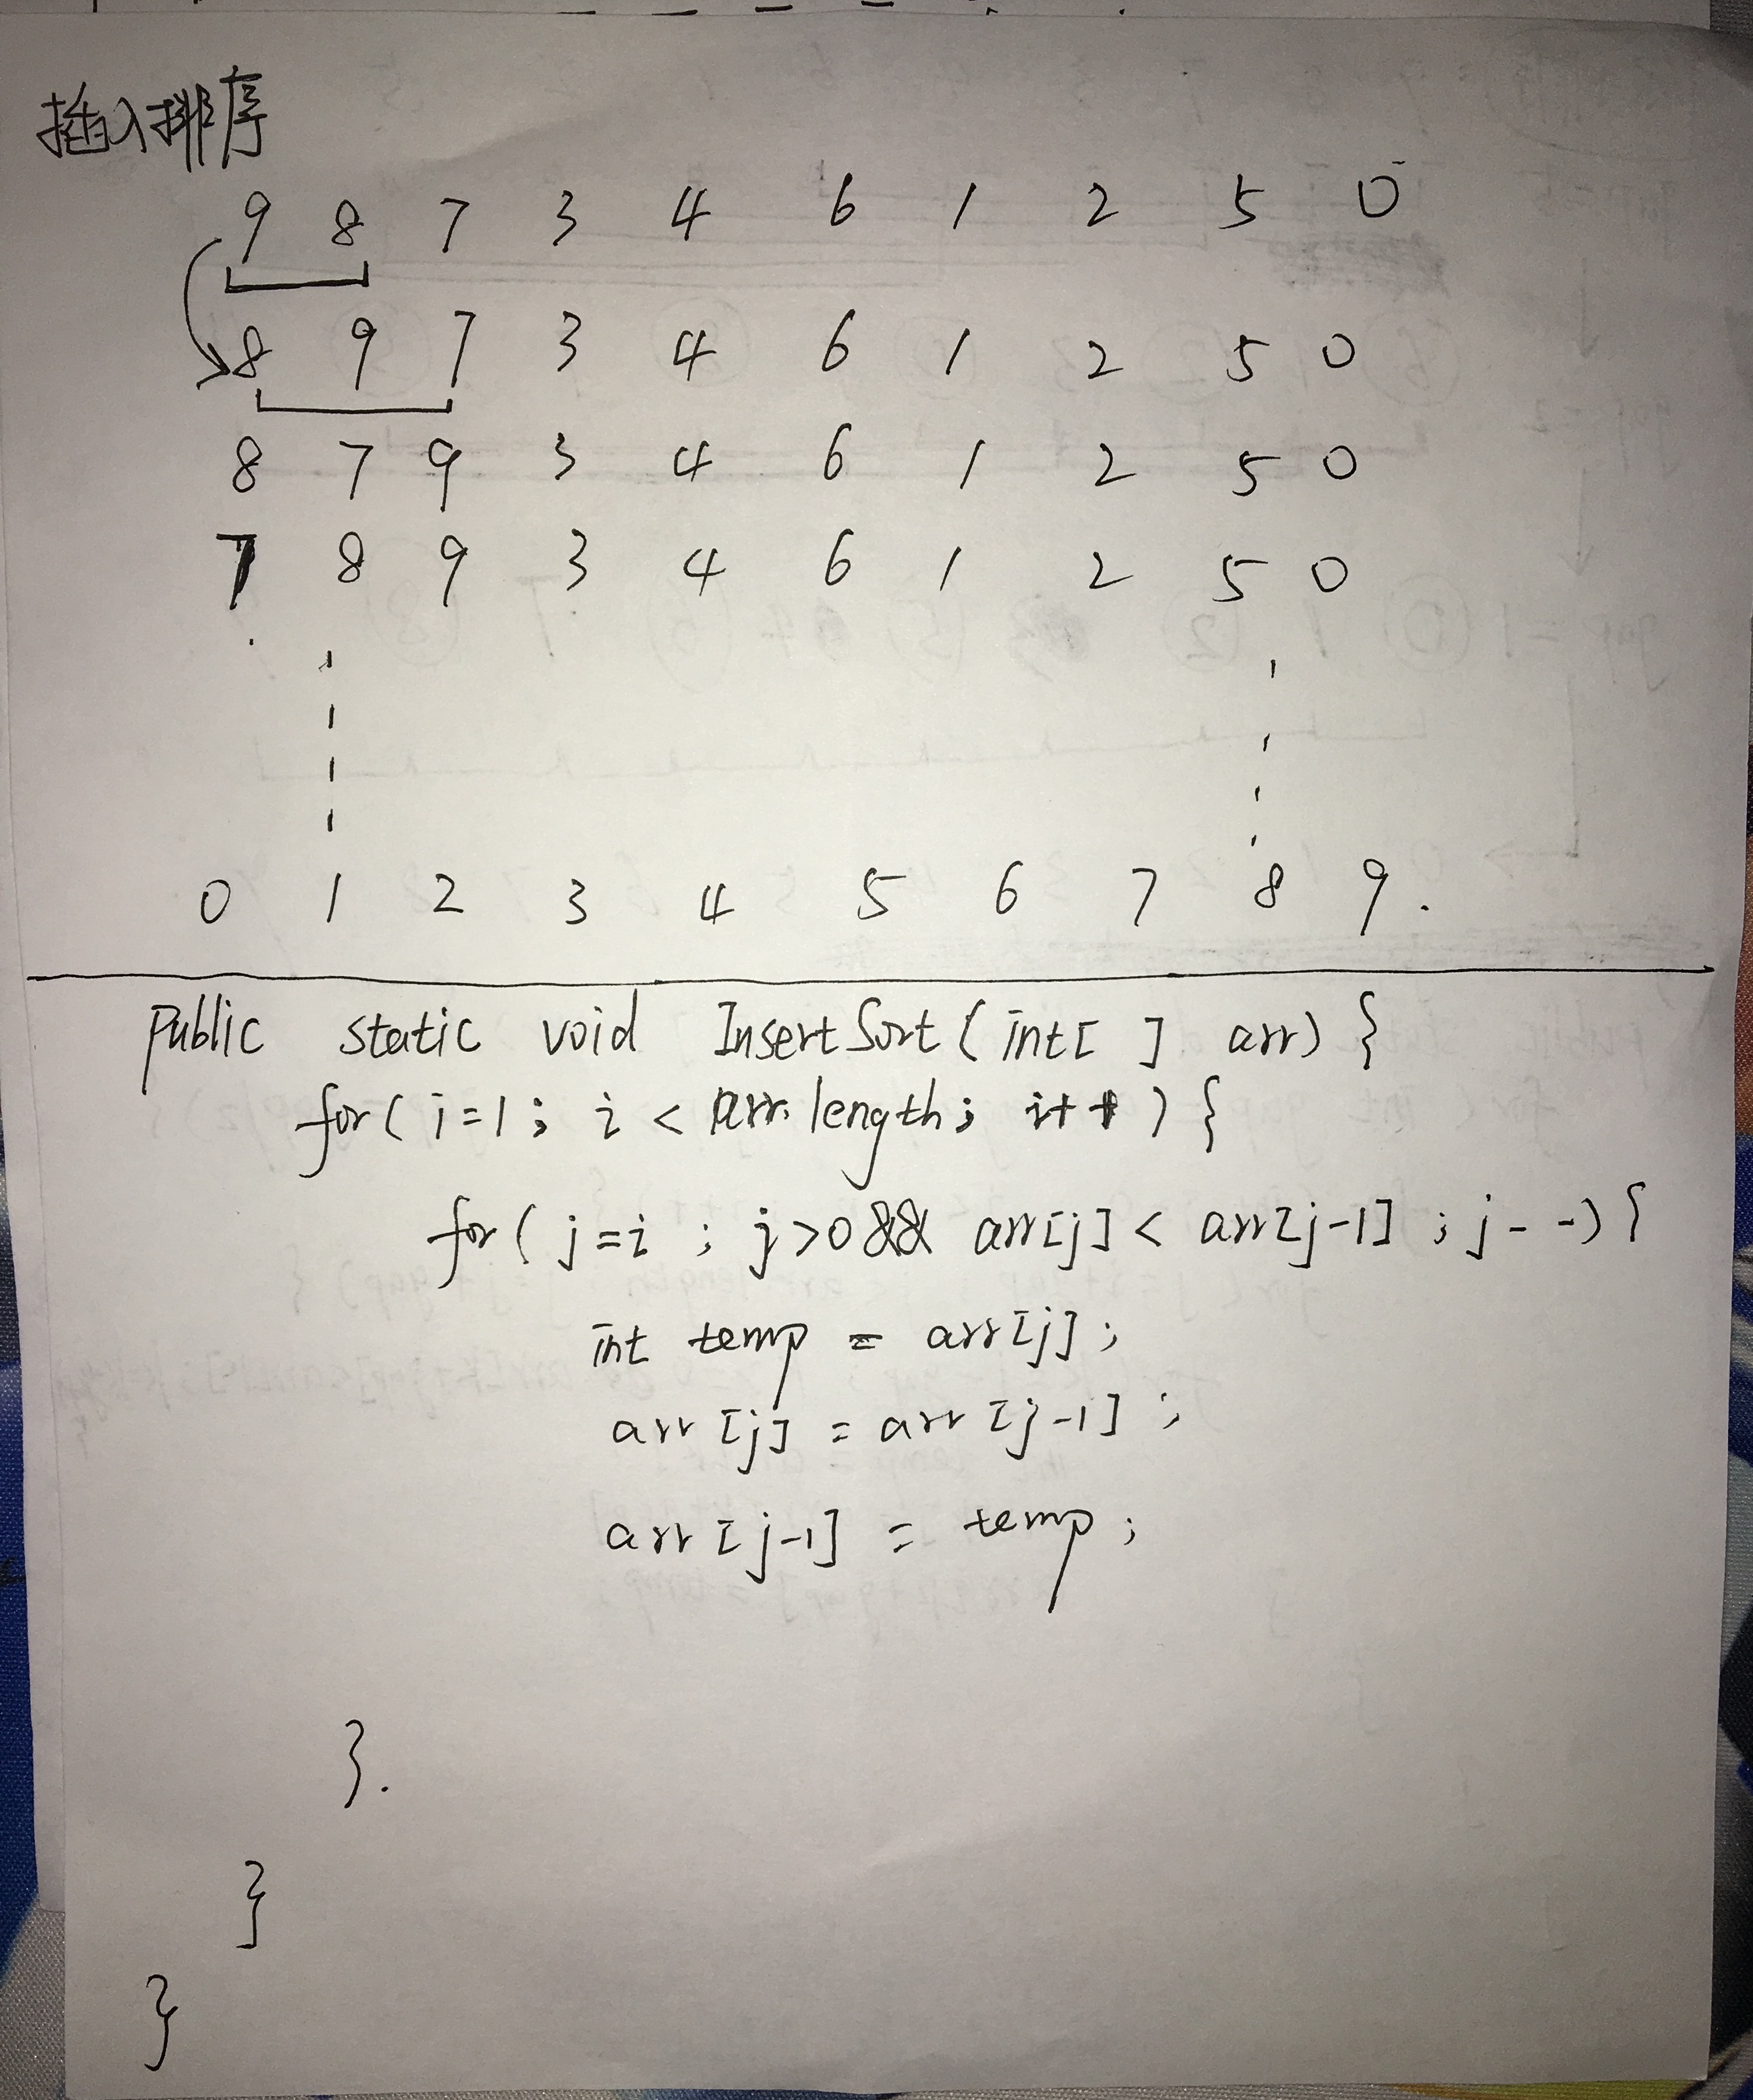 插入排序
9 8 7 3 4 6 1 2 5 0
8 9 7 3 4 6 1 2 5 0
8 7 9 3 4 6 1 2 5 0
7 8 9 3 4 6 1 2 5 0
0 1 2 3 4 5 6 7 8 9.
public static void InsertSort(int[ ] arr) {
for( i=1; i < arr.length; i++ ) {
for( j=i ; j>0 && arr[j] < arr[j-1] ; j--) {
int temp = arr[j];
arr[j] = arr[j-1];
arr[j-1] = temp;
}.
}
}